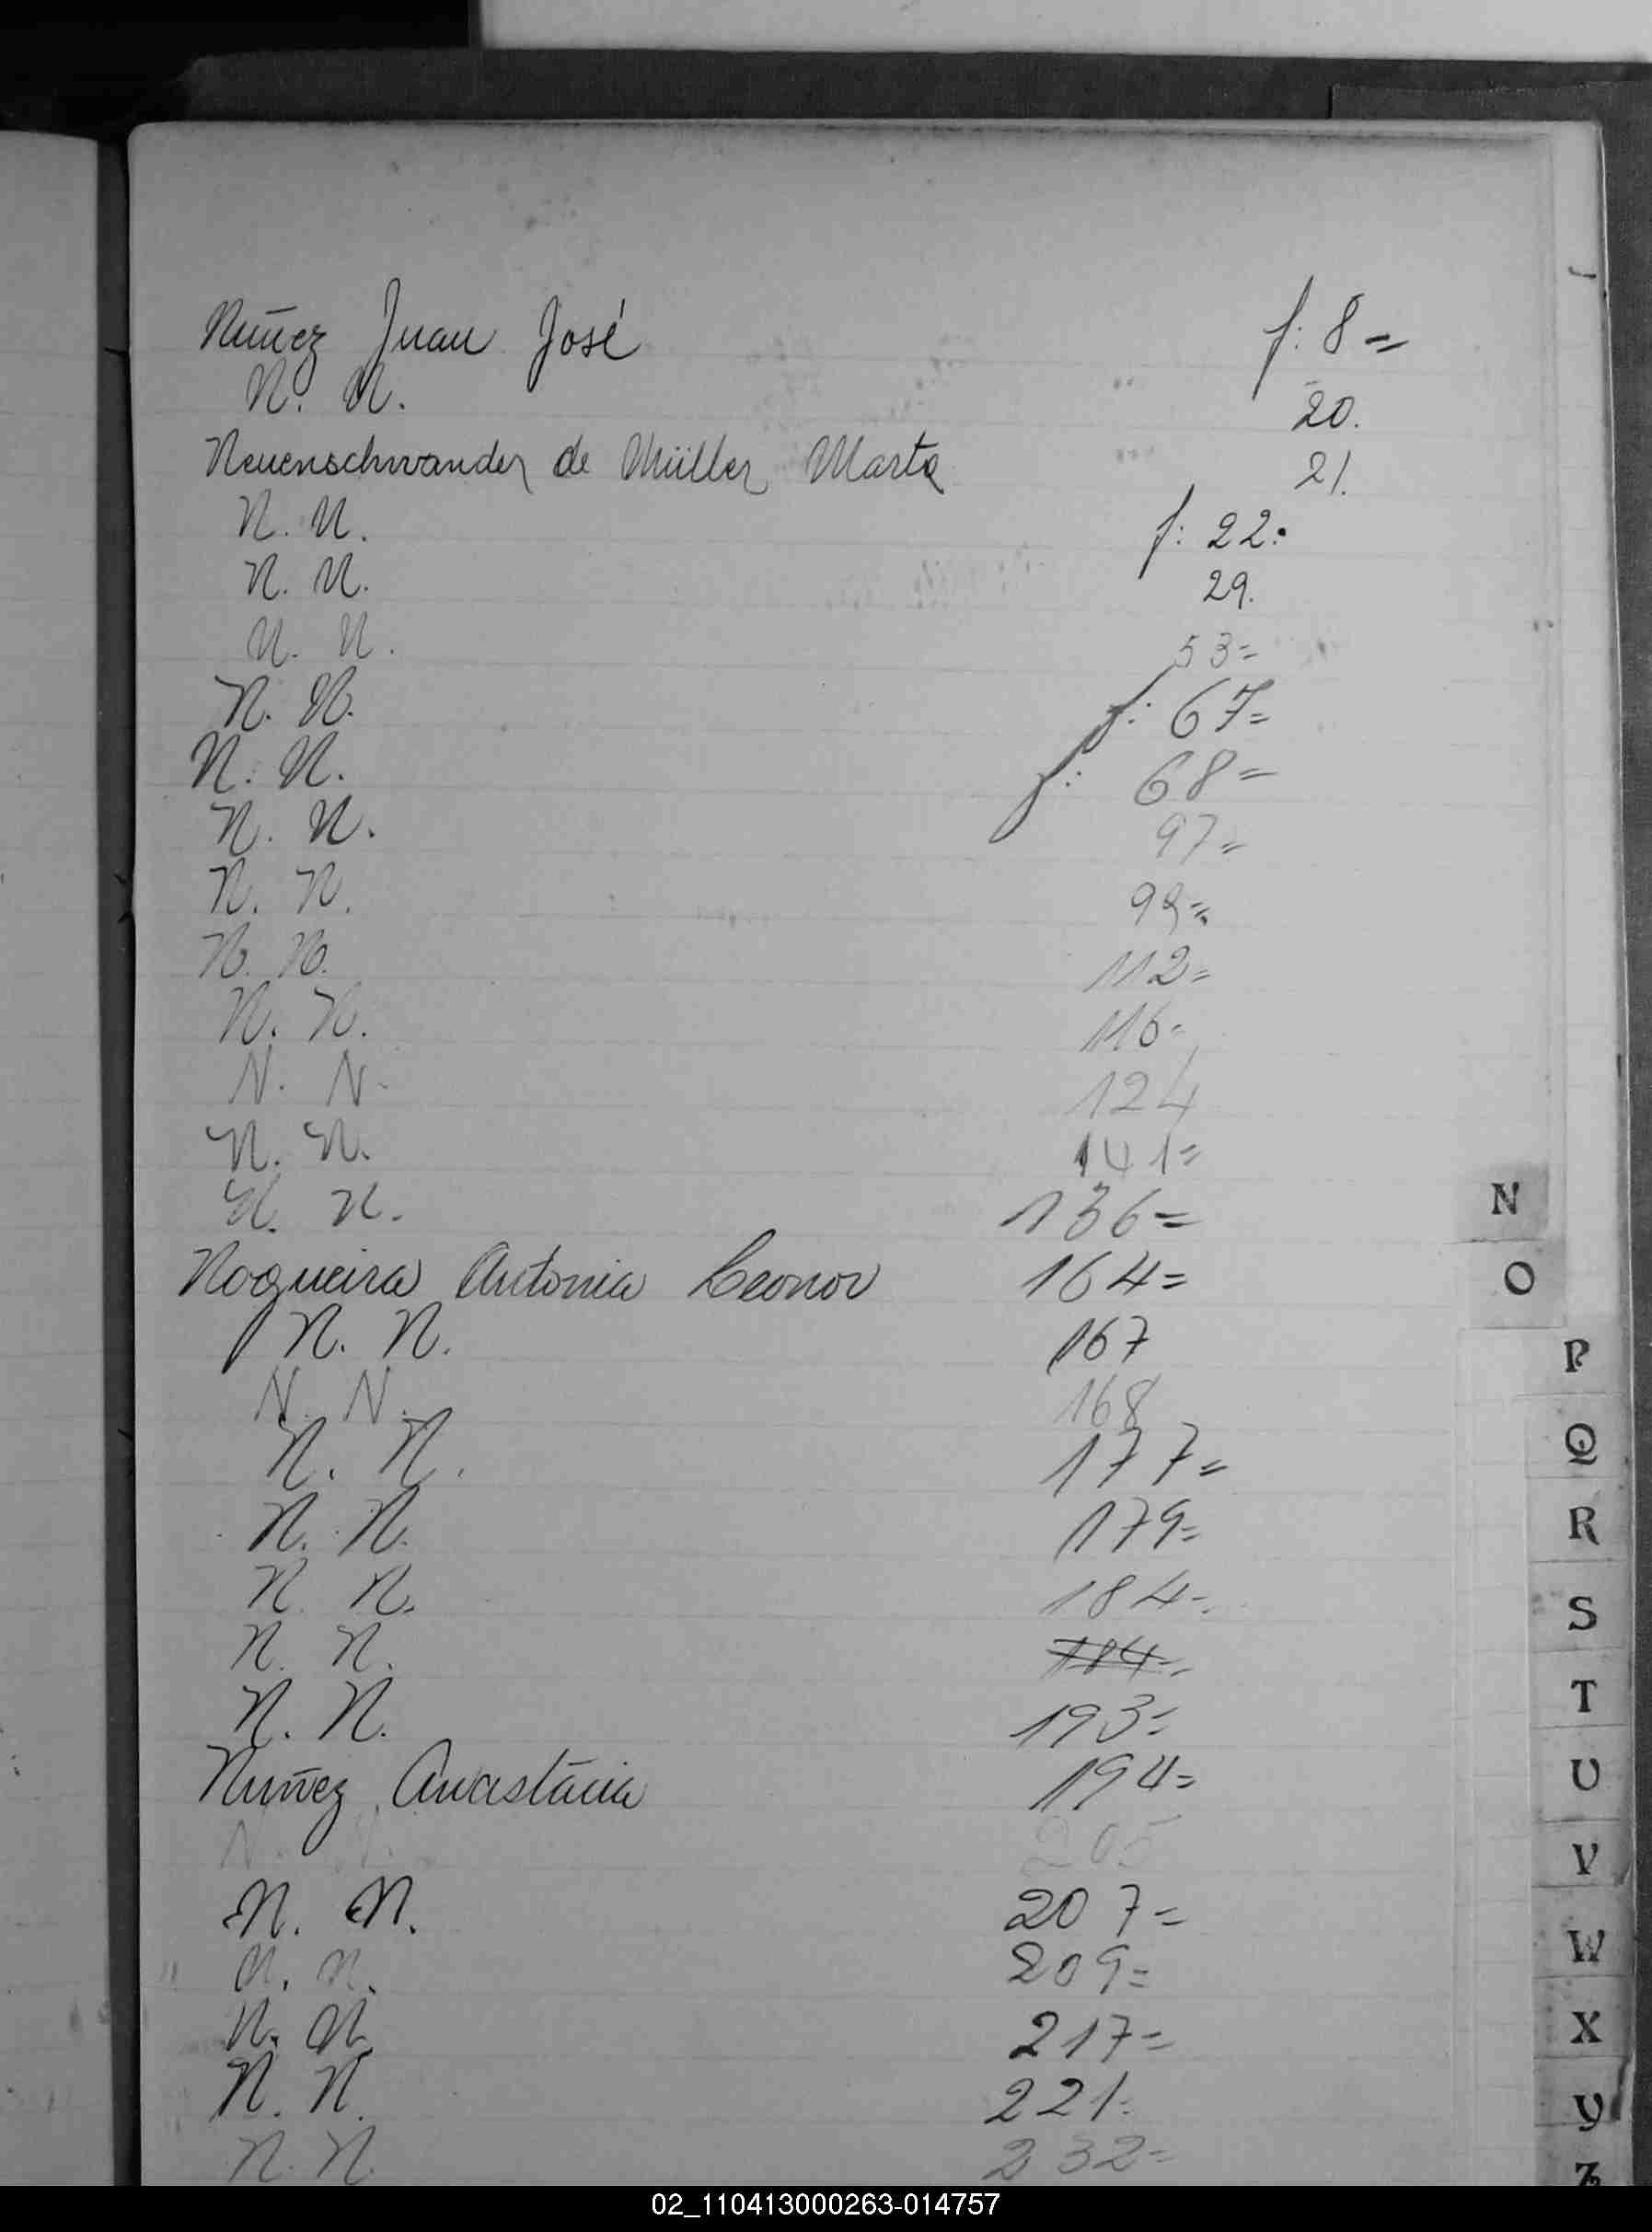 Nuñez Juan José f: 8=
N. N. 20.
Neuenschwander de Müller Marta 21.
N. N. f: 22.
N. N. 29.
N. N. 53=
N. N. f: 67=
N. N. f: 68=
N. N. 97=
N. N. 99=
N. N. 112=
N. N. 116=
N. N. 124
N. N. 141=
N. N. 136=
Nogueira Antonia Leonor 164=
N. N. 167
N. N. 168
N. N. 177=
N. N. 179=
N. N. 184=
N. N. 184=
N. N. 193=
Nuñez Anastácia 194=
N. N. 205
N. N. 207=
N. N. 209=
N. N. 217=
N. N. 221=
N. N. 232=
N
O
P
Q
R
S
T
U
V
W
X
Y
Z
02_110413000263-014757